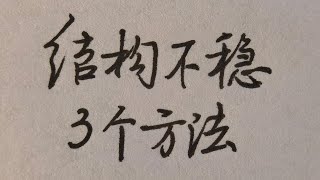 结构不稳
3个方法